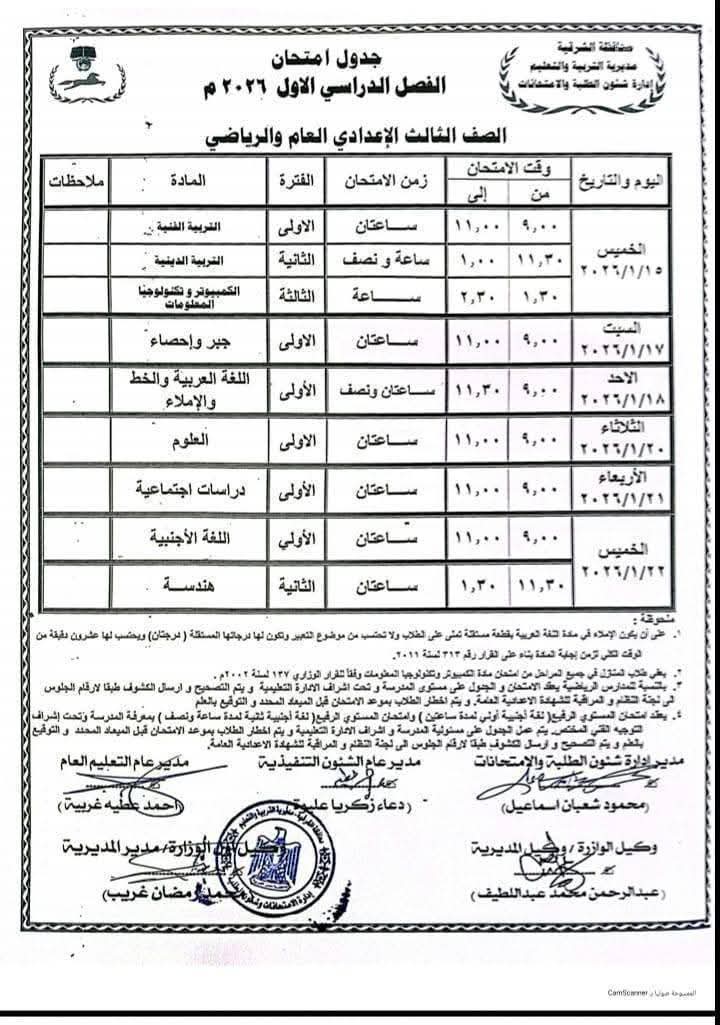 محافظة الشرقية
مديرية التربية والتعليم
إدارة شئون الطلبة والامتحانات
جدول امتحان
الفصل الدراسي الاول ٢٠٢٦ م
الصف الثالث الإعدادي العام والرياضي
اليوم والتاريخ وقت الامتحان زمن الامتحان الفترة المادة ملاحظات
من إلى
الخميس ٢٠٢٦/١/١٥
٩,٠٠ ١١,٠٠ ساعتان الاولى التربية الفنية
١١,٣٠ ١,٠٠ ساعة و نصف الثانية التربية الدينية
١,٣٠ ٢,٣٠ ساعة الثالثة الكمبيوتر و تكنولوجيا المعلومات
السبت ٢٠٢٦/١/١٧ ٩,٠٠ ١١,٠٠ ساعتان الاولى جبر وإحصاء
الاحد ٢٠٢٦/١/١٨ ٩,٠٠ ١١,٣٠ ساعتان ونصف الأولى اللغة العربية والخط والإملاء
الثلاثاء ٢٠٢٦/١/٢٠ ٩,٠٠ ١١,٠٠ ساعتان الاولى العلوم
الأربعاء ٢٠٢٦/١/٢١ ٩,٠٠ ١١,٠٠ ساعتان الأولى دراسات اجتماعية
الخميس ٢٠٢٦/١/٢٢
٩,٠٠ ١١,٠٠ ساعتان الأولي اللغة الأجنبية
١١,٣٠ ١,٣٠ ساعتان الثانية هندسة
ملحوظة :
١. على أن يكون الإملاء في مادة اللغة العربية بقطعة مستقلة تملى على الطلاب ولا تحتسب من موضوع التعبير وتكون لها درجاتها المستقلة ( درجتان) ويحتسب لها عشرون دقيقة من
الوقت الكلي لزمن إجابة المادة بناء على القرار رقم ٣١٣ لسنة ٢٠١١.
٢. يعفي طلاب المنازل في جميع المراحل من امتحان مادة الكمبيوتر وتكنولوجيا المعلومات وفقاً للقرار الوزاري ١٣٧ لسنة ٢٠٠٢م.
٣. بالنسبة للمدارس الرياضية يعقد الامتحان و الجدول على مستوى المدرسة و تحت اشراف الادارة التعليمية و يتم التصحيح و ارسال الكشوف طبقا لارقام الجلوس
الى لجنة النظام و المراقبة للشهادة الاعدادية العامة, و يتم اخطار الطلاب بموعد الامتحان قبل الميعاد المحدد و التوقيع بالعلم
٤. يعقد امتحان المستوي الرفيع( لغة أجنبية أولي لمدة ساعتين ) وامتحان المستوي الرفيع( لغة أجنبية ثانية لمدة ساعة ونصف ) بمعرفة المدرسة وتحت إشراف
التوجيه الفني المختص, يتم عمل الجدول على مسئولية المدرسة و اشراف الادارة التعليمية و يتم اخطار الطلاب بموعد الامتحان قبل الميعاد المحدد و التوقيع
بالعلم و يتم التصحيح و ارسال الكشوف طبقا لارقام الجلوس الى لجنة النظام و المراقبة للشهادة الاعدادية العامة.
مدير إدارة شئون الطلبة والامتحانات مدير عام الشئون التنفيذية مدير عام التعليم العام
(محمود شعبان اسماعيل) (دعاء زكريا عليوة) (احمد عطيه غريبة)
وكيل الوازرة / وكيل المديرية وكيل أول الوزارة / مدير المديرية
(عبدالرحمن محمد عبداللطيف) رمضان غريب)
الممسوحة ضوئيا بـ CamScanner